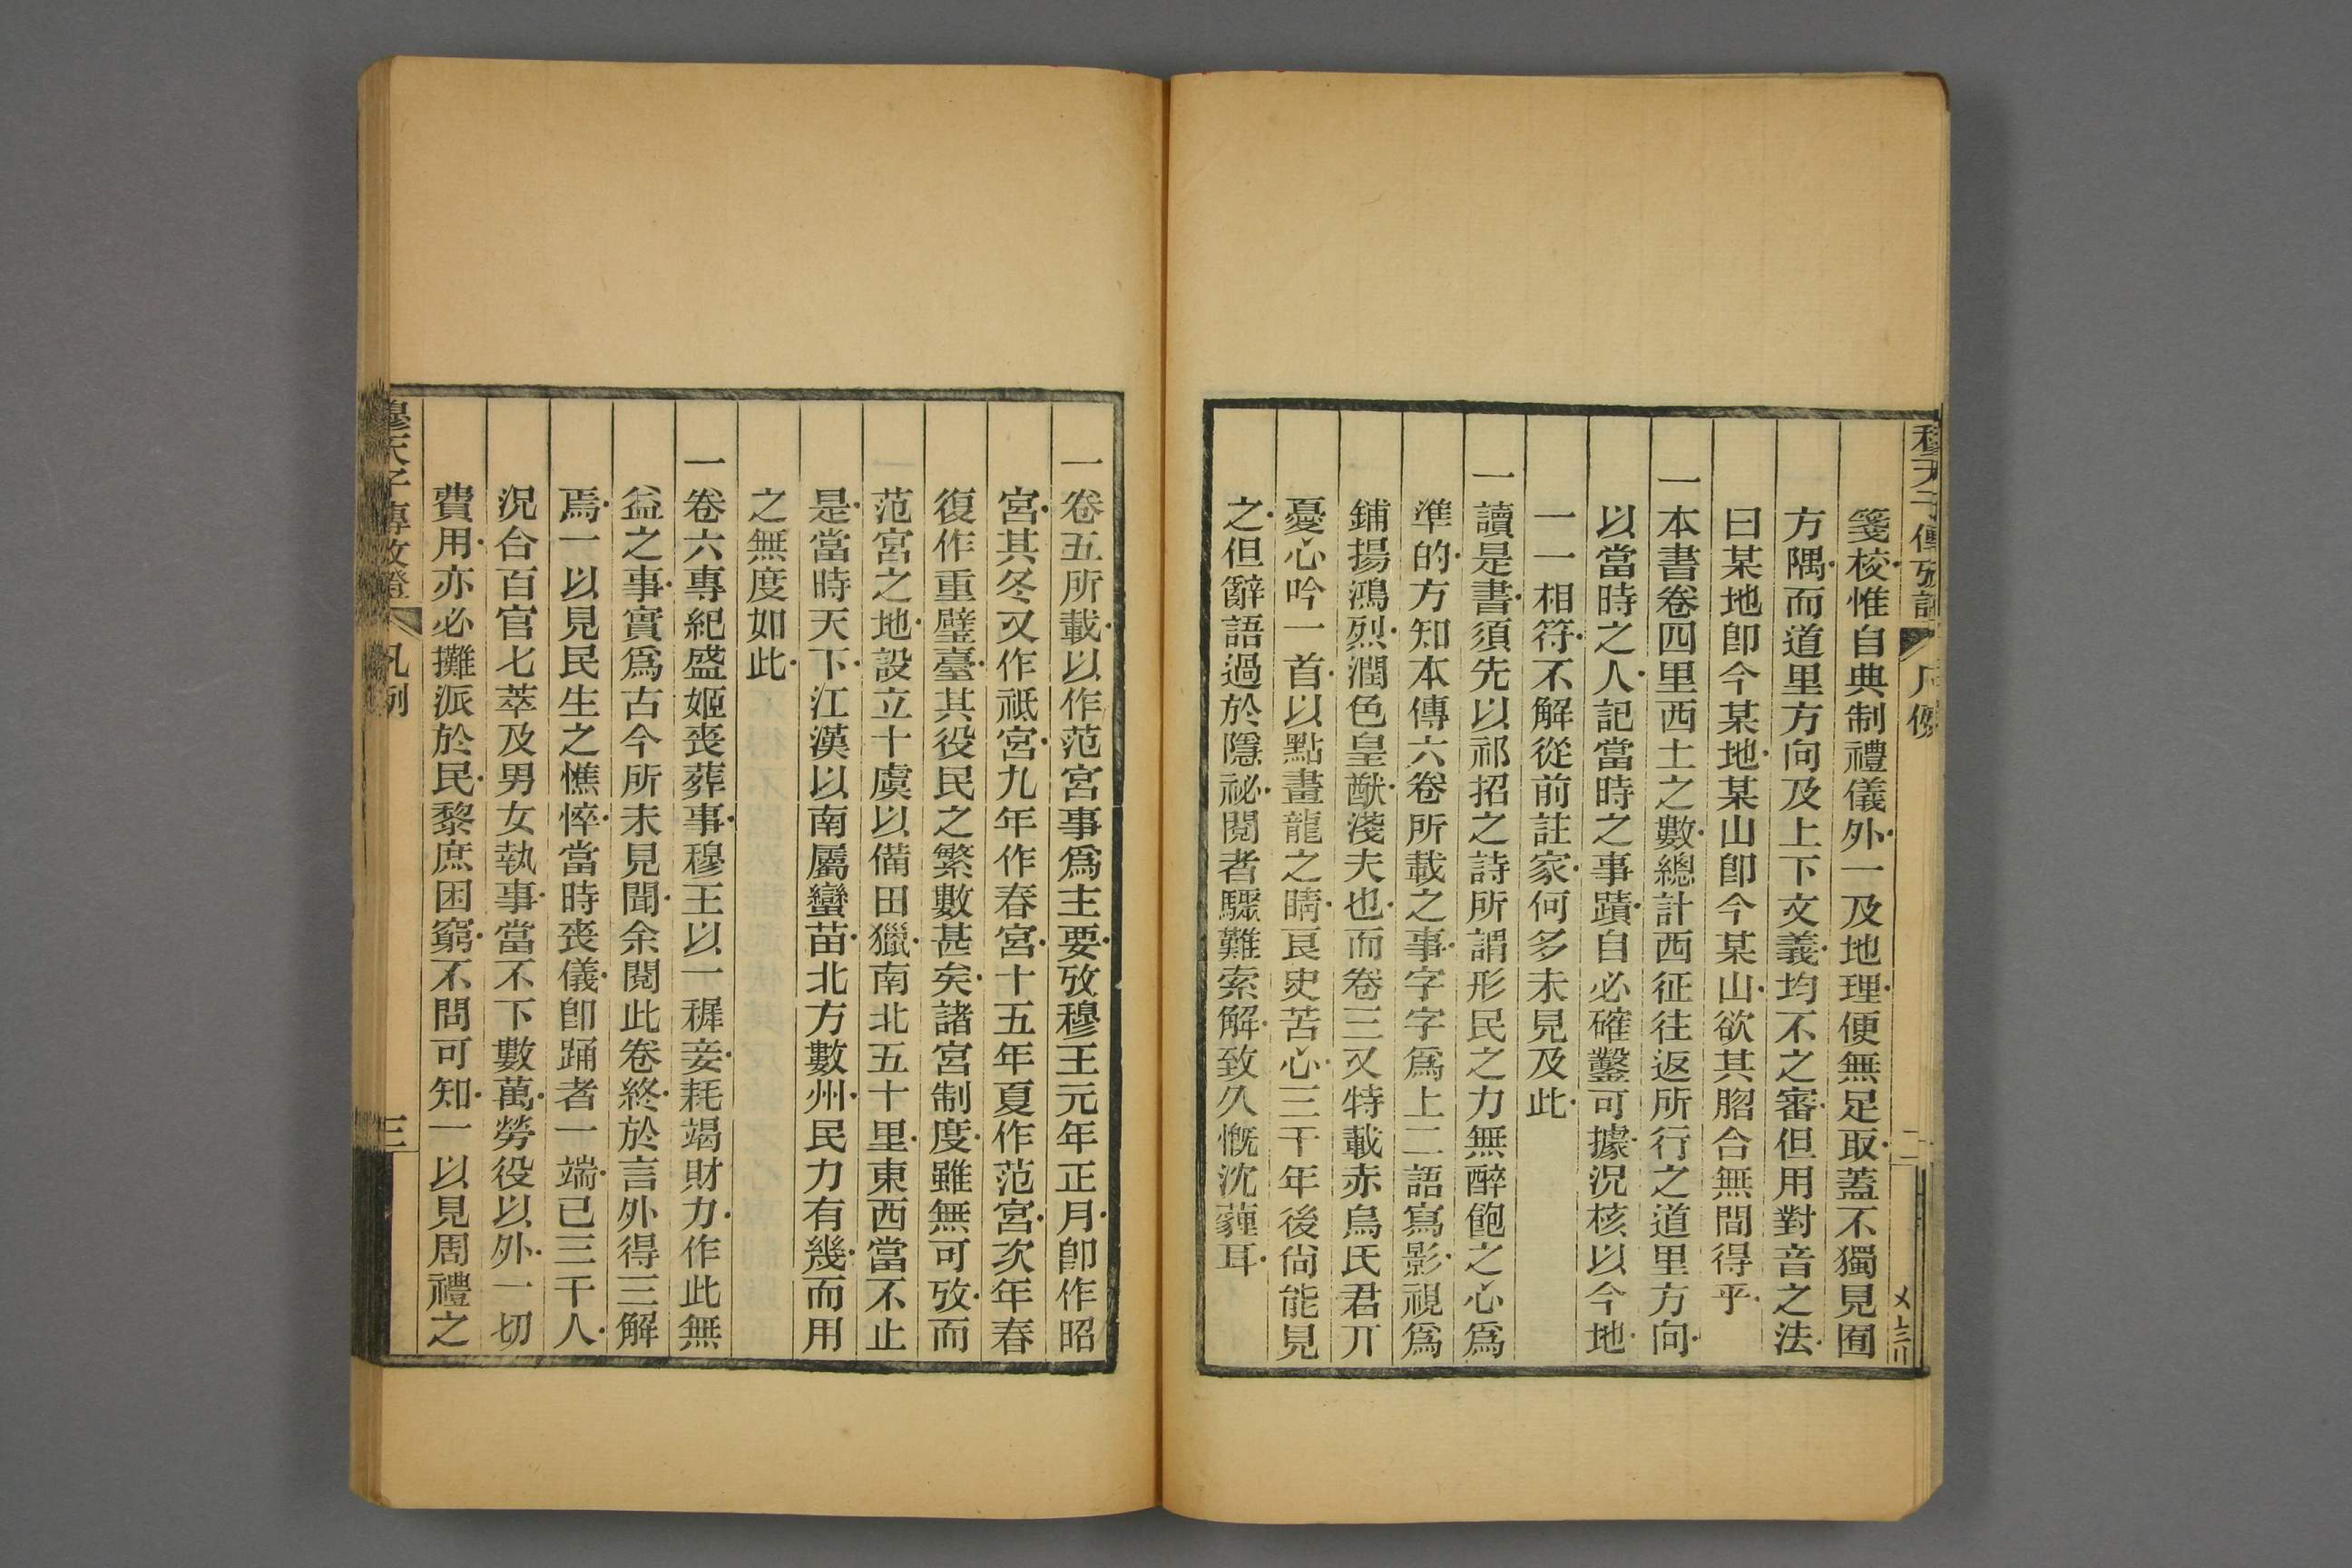 箋校惟自典制禮儀外一及地理便無足取蓋不獨見囿
方隅而道里方向及上下文義均不之審但用對音之法
曰某地卽今某地某山卽今某山欲其脗合無間得乎
一本書卷四里西土之數總計西征往返所行之道里方向
以當時之人記當時之事蹟自必確鑿可據況核以今地
一一相符不解從前註家何多未見及此
一讀是書須先以祁招之詩所謂形民之力無醉飽之心爲
準的方知本傳六卷所載之事字字爲上二語寫影視爲
鋪揚鴻烈潤色皇猷淺夫也而卷三又特載赤烏氏君丌
憂心吟一首以點畫龍之睛良史苦心三千年後尙能見
之但辭語過於隱祕閱者驟難索解致久慨沈薶耳
一卷五所載以作范宮事爲主要攷穆王元年正月卽作昭
宮其冬又作祗宮九年作春宮十五年夏作范宮次年春
復作重璧臺其役民之繁數甚矣諸宮制度雖無可攷而
范宮之地設立十虞以備田獵南北五十里東西當不止
是當時天下江漢以南屬蠻苗北方數州民力有幾而用
之無度如此
一卷六專紀盛姬喪葬事穆王以一穉妾耗竭財力作此無
益之事實爲古今所未見聞余閱此卷終於言外得三解
焉一以見民生之憔悴當時喪儀卽踊者一端已三千人
況合百官七萃及男女執事當不下數萬勞役以外一切
費用亦必攤派於民黎庶困窮不問可知一以見周禮之
穆天子傳攷證 凡例 三